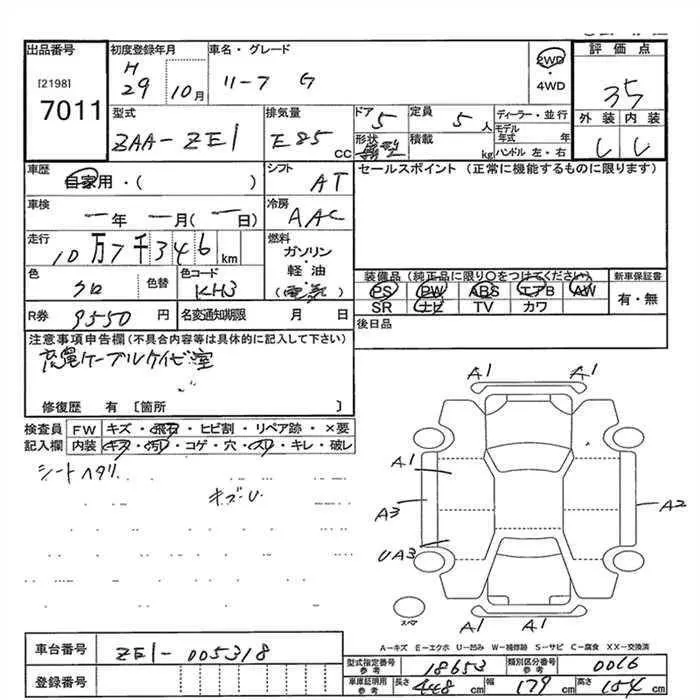 出品番号 初度登録年月 車名・グレード 評価点
[2198] 7011
H 29 10月 リーフ G 2WD・4WD 3.5
型式 排気量 ドア 5 定員 5人 ディーラー・並行 外装 内装
ZAA-ZE1 E85 cc 形状 積載 kg モデル年式 年
ハンドル 左・右
車歴 シフト セールスポイント (正常に機能するものに限ります)
自家用・( ) AT
車検 冷房
一年 一月(一日) AAC
走行 燃料
10万7千346km ガソリン・軽油・(電気)
色 色替 色コード 装備品(純正品に限り○をつけてください) 新車保証書
クロ KH3 PS PW ABS エアB AW 有・無
SR ナビ TV カワ
R券 9550円 名変通知期限 月 日 後日品
注意事項申告欄(不具合内容等は具体的に記入して下さい)
修復歴 有 [箇所 ]
検査員 FW キズ・飛石・ヒビ割・リペア跡・×要
記入欄 内装 キズ・汚れ・コゲ・穴・スレ・キレ・破レ
シートヘタリ
キズ・U
A1 A1
A1
A3 A2
UA3
スペア
A1 A1
A-キズ E-エクボ U-凹み W-補修跡 S-サビ C-腐食 XX-交換済
車台番号 ZE1-005318
登録番号
型式指定番号 参考 18653 類別区分番号 参考 0016
車庫証明用 参考 長さ 448cm 幅 179cm 高さ 154cm